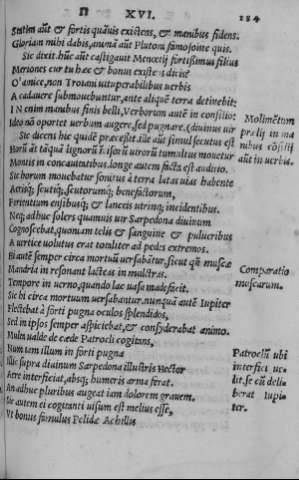 Π XVI. 184
Sestim aũt & fortis quãuis existens, & manibus fidens.
Gloriam mihi dabis, animã aũt Plutoni famosointe quis.
Sic dixit hũc aũt castigauit Menetij fortissimus filius
Meriones cur tu hæc & bonus existens dicis?
O' amice, non Troiani uituperabilibus uerbis
A cadauere submouebuntur, ante aliquẽ terra detinebit:
IN enim manibus finis belli, Verborum autẽ in consilio:
Ideo nõ oportet uerbum augere, sed pugnare. (diuinus uir
Sic dicens hic quidẽ præcessit. ille aũt simul secutus est
Horũ ãt tãquã lignorũ uirorũ tumultus mouetur
Montis in concauitatibus. longe autem facta est auditio.
Sic horum mouebatur sonitus à terra latas uias habente
Aerisq́; scutiq́; scutorumq́; benefactorum,
Ferientium ensibusq́; & lanceis utrinq; incidentibus.
Neq; adhuc solers quamuis uir Sarpedona diuinum
Cognoscebat, quoniam telis & sanguine & pulueribus
A uertice uolutus erat totaliter ad pedes extremos.
Hi autẽ semper circa mortuũ uersabãtur, sicut qñ muscæ
Mandria in resonant lacteas in mulctras.
Tempore in uerno, quando lac uasa madefacit.
Sic hi circa mortuum uersabantur. nunquã autẽ Iupiter
Flectebat à forti pugna oculos splendidos,
Sed in ipsos semper aspiciebat, & considerabat animo.
Multa ualde de cæde Patrocli cogitans,
Num iam illum in forti pugna
Illic supra diuinum Sarpedona illustris Hector
Aere interficiat, absq; humeris arma ferat.
An adhuc pluribus augeat iam dolorem grauem.
Sic autem ei cogitanti uisum est melius esse,
Vt bonus famulus Pelidæ Achillis
Molimẽtum
prælij in ma
nibus cõsilij
aũt in uerbis.
Comparatio
muscarum.
Patroclũ ubi
interfici ue-
lit, se cũ deli-
berat Iupi-
ter.